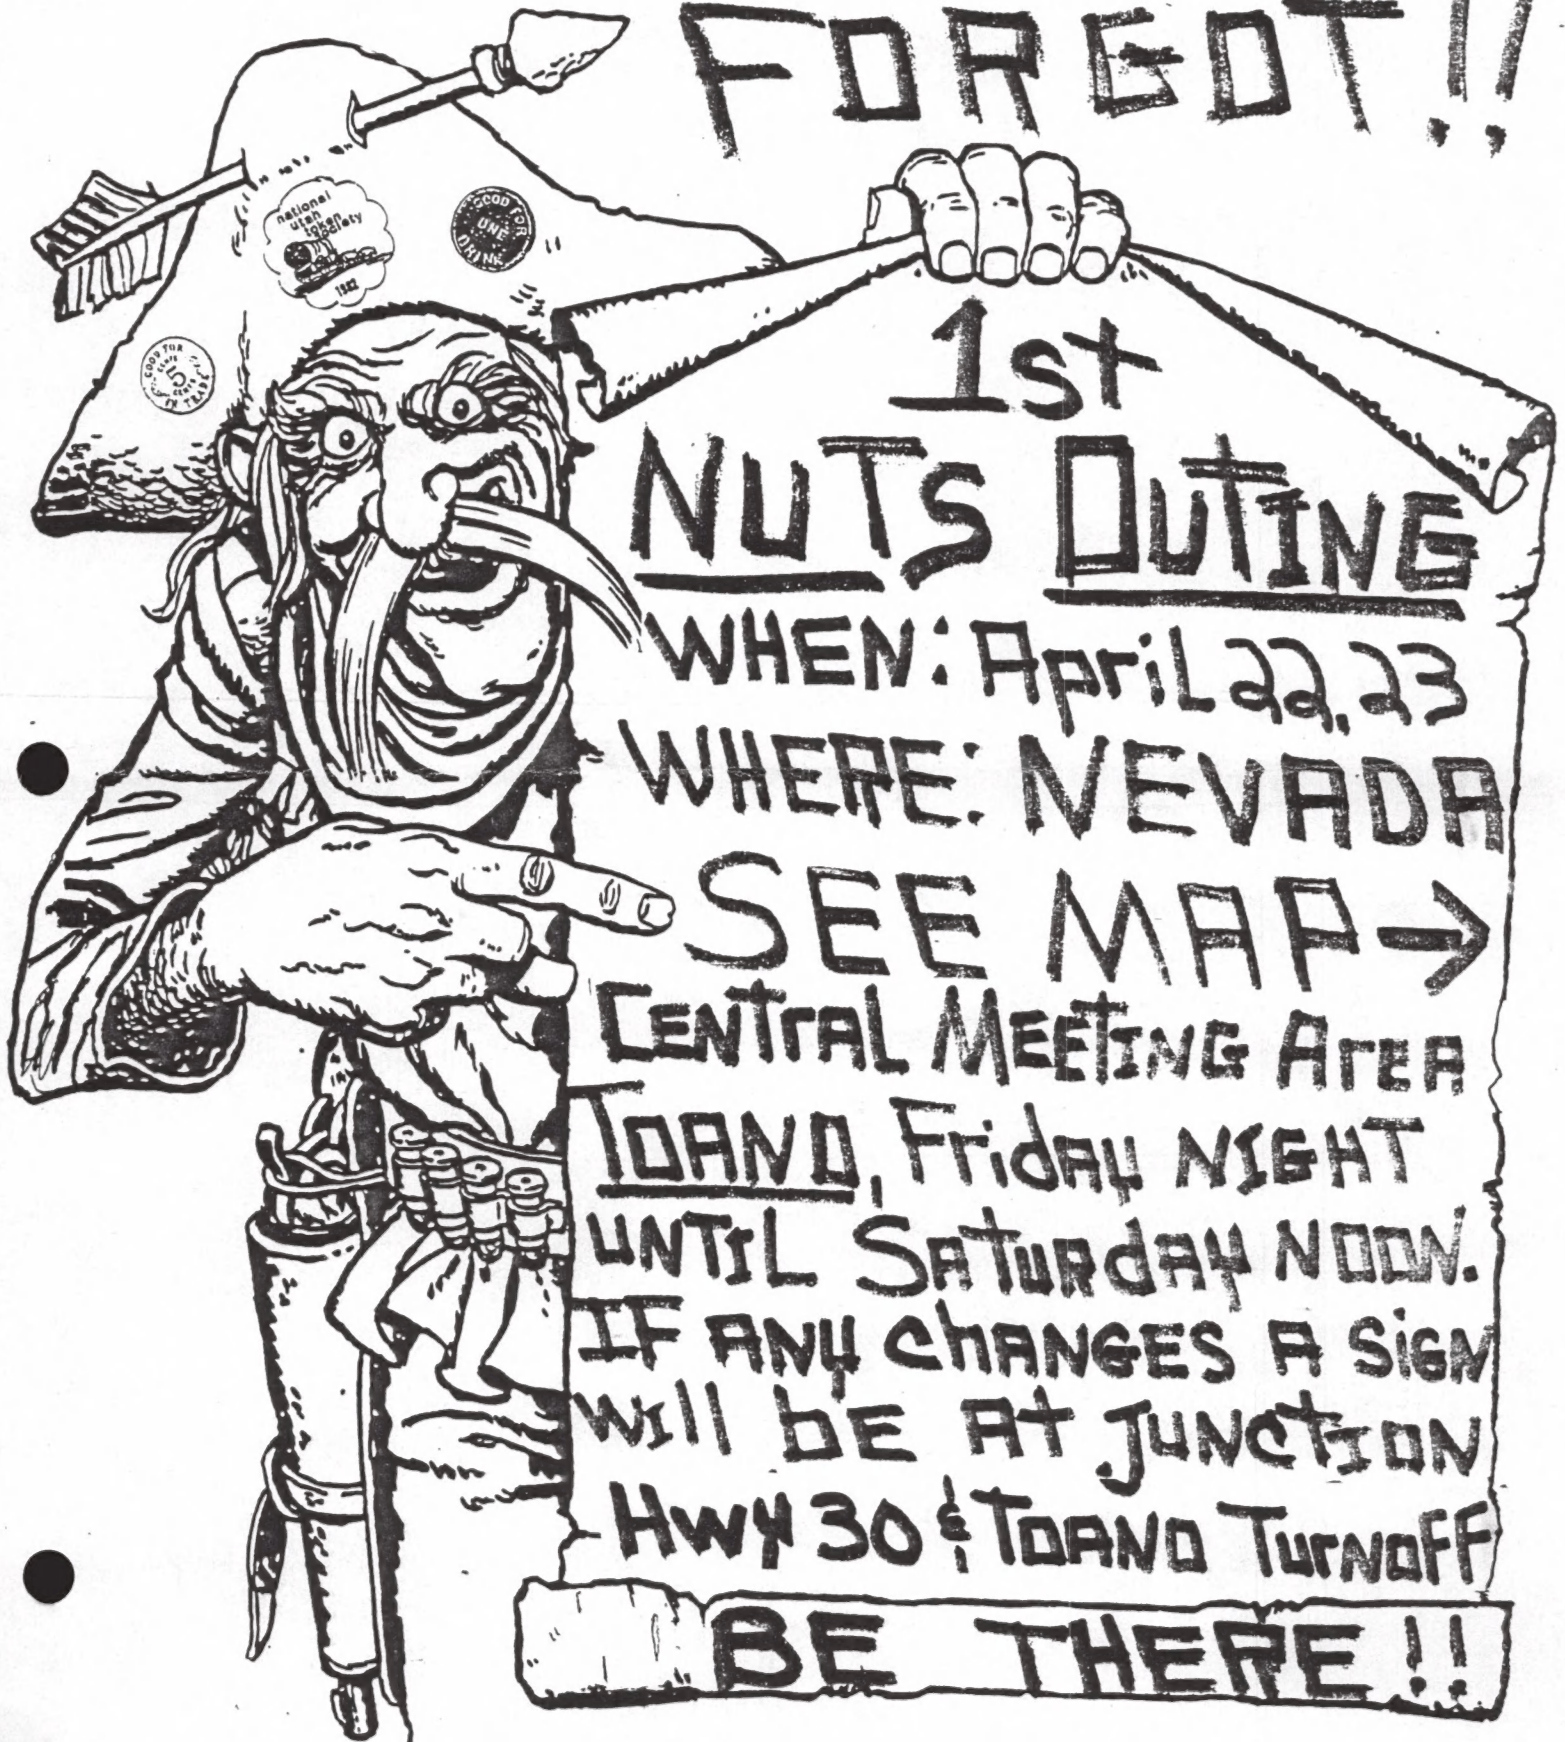 FORGOT!!
national
utah
token
society
1982
GOOD FOR
ONE
DRINK
GOOD FOR
5
IN TRADE
1st
NUTS OUTING
WHEN: April 22, 23
WHERE: NEVADA
SEE MAP →
CENTrAL MEETING ArEA
TOANO, Friday NIGHT
UNTIL SATURdAy NOON.
IF ANy chANGES A SiGN
Will bE At JUNctION
Hwy 30 & TOANO TurNOFF
BE THERE!!